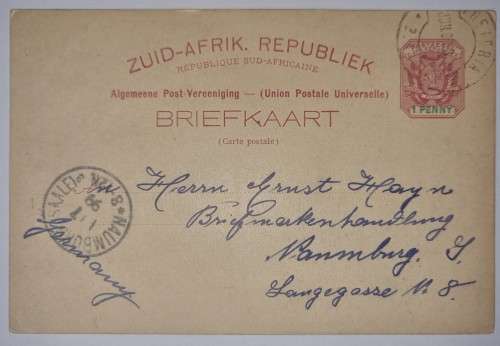 ZUID-AFRIK. REPUBLIEK
RÉPUBLIQUE SUD-AFRICAINE
Algemeene Post-Vereeniging — (Union Postale Universelle)
BRIEFKAART
(Carte postale)
1 PENNY
An Herrn Ernst Hayn
Briefmarkenhandlung
Naumburg. S.
Langegasse N 8.
Germany